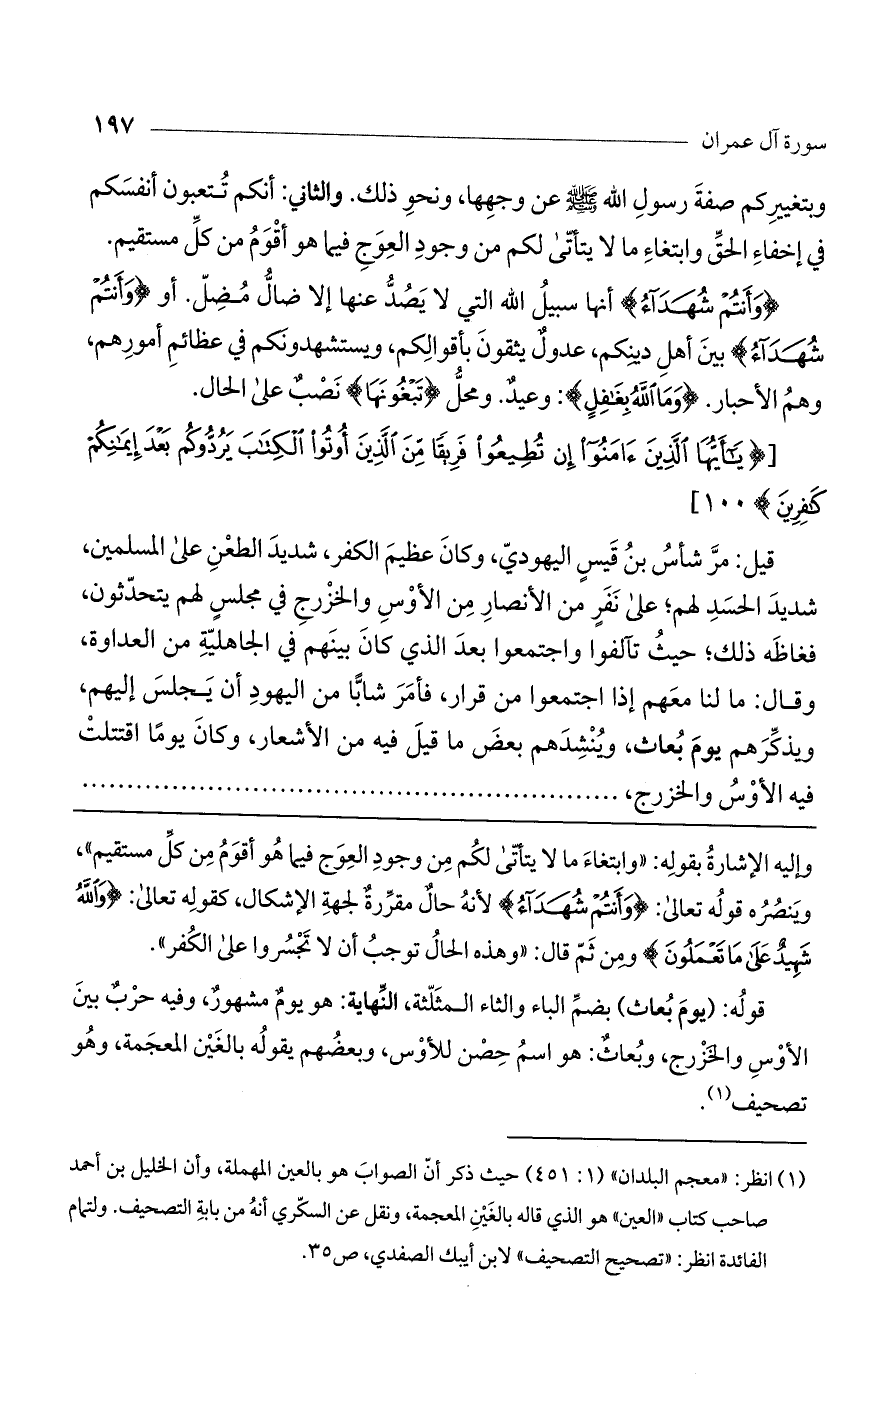 سورة آل عمران ١٩٧
وبتغييرِكم صفةَ رسولِ الله ﷺ عن وجهِها، ونحوِ ذلك. والثاني: أنكم تُتعبون أنفسَكم
في إخفاءِ الحقِّ وابتغاءِ ما لا يتأتّىٰ لكم من وجودِ العِوَجِ فيما هو أقْوَمُ من كلِّ مستقيم.
﴿وَأَنتُمْ شُهَدَآءُ﴾ أنها سبيلُ الله التي لا يَصُدُّ عنها إلا ضالٌّ مُضِلّ. أو ﴿وَأَنتُمْ
شُهَدَآءُ﴾ بينَ أهلِ دينِكم، عدولٌ يثقونَ بأقوالِكم، ويستشهدونَكم في عظائمِ أمورِهم،
وهمُ الأحبار. ﴿وَمَا ٱللَّهُ بِغَٰفِلٍ﴾: وعيدٌ. ومحلُّ ﴿تَبْغُونَهَا﴾ نَصْبٌ علىٰ الحال.
[﴿يَٰٓأَيُّهَا ٱلَّذِينَ ءَامَنُوٓا۟ إِن تُطِيعُوا۟ فَرِيقًا مِّنَ ٱلَّذِينَ أُوتُوا۟ ٱلْكِتَٰبَ يَرُدُّوكُم بَعْدَ إِيمَٰنِكُمْ
كَٰفِرِينَ﴾ ١٠٠]
قيل: مرَّ شأسُ بنُ قَيسٍ اليهوديّ، وكانَ عظيمَ الكفر، شديدَ الطعْنِ علىٰ المسلمين،
شديدَ الحسَدِ لهم؛ علىٰ نَفَرٍ من الأنصارِ مِن الأوْسِ والخزْرجِ في مجلسٍ لهم يتحدّثون،
فغاظَه ذلك؛ حيثُ تآلفوا واجتمعوا بعدَ الذي كانَ بينَهم في الجاهليّةِ من العداوة،
وقال: ما لنا معَهم إذا اجتمعوا من قرار، فأمَرَ شابًّا من اليهودِ أن يَجلسَ إليهم،
ويذكِّرَهم يومَ بُعاث، ويُنْشِدَهم بعضَ ما قيلَ فيه من الأشعار، وكانَ يومًا اقتتلتْ
فيه الأوْسُ والخزرج، ........................................................
وإليه الإشارةُ بقولِه: «وابتغاءَ ما لا يتأتّىٰ لكُم مِن وجودِ العِوَجِ فيما هُو أقوَمُ مِن كلِّ مستقيم»،
ويَنصُرُه قولُه تعالىٰ: ﴿وَأَنتُمْ شُهَدَآءُ﴾ لأنهُ حالٌ مقرِّرةٌ لجهةِ الإشكال، كقولِه تعالىٰ: ﴿وَٱللَّهُ
شَهِيدٌ عَلَىٰ مَا تَعْمَلُونَ﴾ ومِن ثَمّ قال: «وهذه الحالُ توجبُ أن لا تَجْسُروا علىٰ الكُفر».
قولُه: (يومَ بُعاث) بضمِّ الباء والثاء المثلّثة، النِّهاية: هو يومٌ مشهورٌ، وفيه حرْبٌ بينَ
الأوْسِ والخَزْرج، وبُعاثٌ: هو اسمُ حِصْن للأوْس، وبعضُهم يقولُه بالغَيْن المعجَمة، وهُو
تصحيف(١).
(١) انظر: «معجم البلدان» (١: ٤٥١) حيث ذكر أنّ الصوابَ هو بالعين المهملة، وأن الخليل بن أحمد
صاحب كتاب «العين» هو الذي قاله بالغَيْنِ المعجمة، ونقل عن السكّري أنهُ من بابةِ التصحيف. ولتمام
الفائدة انظر: «تصحيح التصحيف» لابن أيبك الصفدي، ص٣٥.